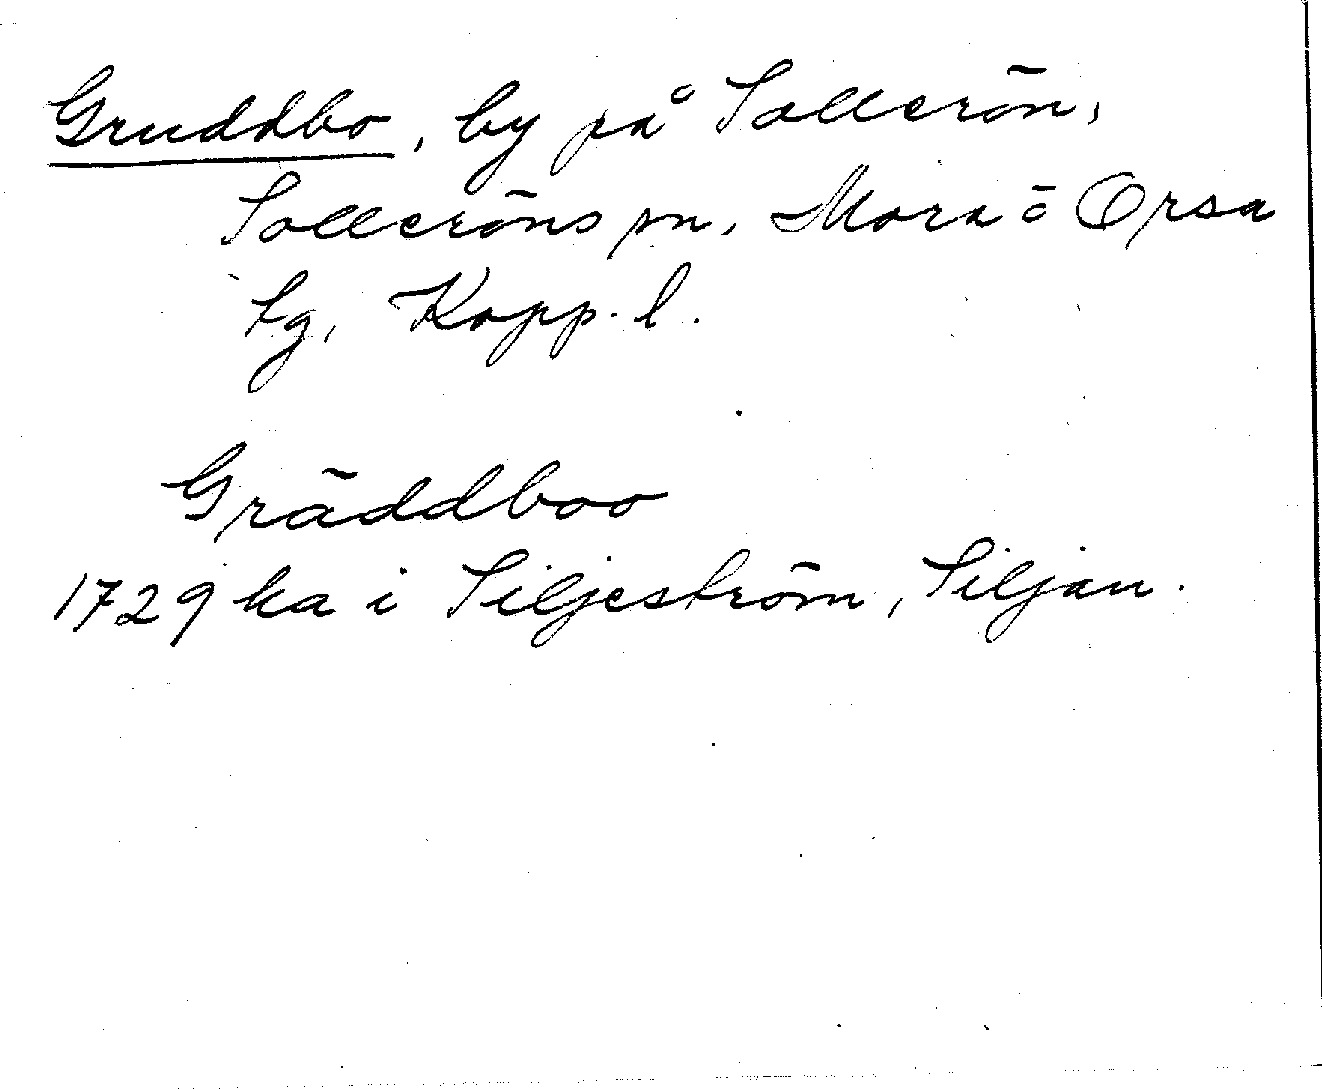 Gruddbo, by på Sollerön,
Solleröns sn, Mora o Orsa
tg, Kopp. l.
Gräddboo
1729 ka i Siljeström, Siljan.